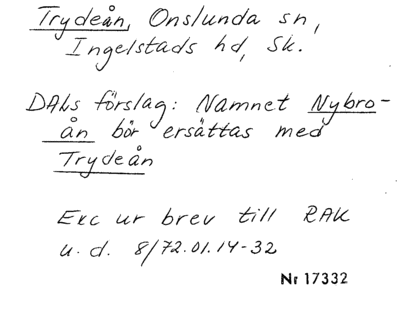 Trydeån, Onslunda sn,
Ingelstads hd, Sk.
DALs förslag: Namnet Nybro-
ån bör ersättas med
Trydeån
Exc ur brev till RAK
u. d. 8/72.01.14-32
Nr 17332